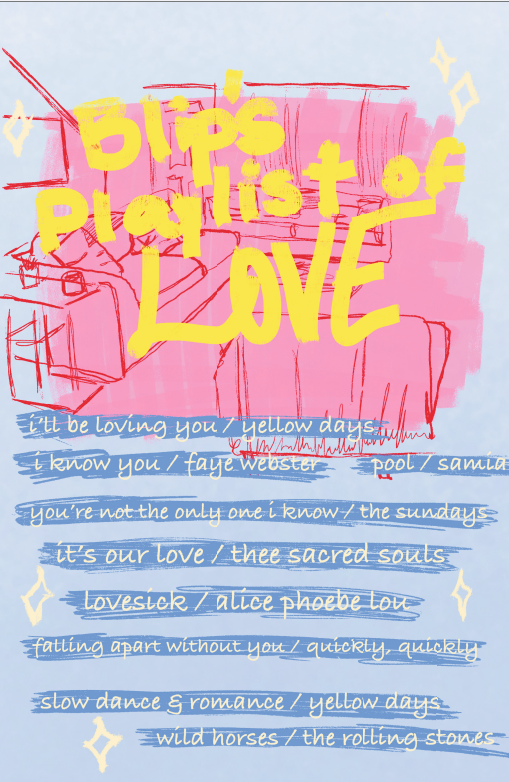 Blip's
Playlist of
LOVE
i'll be loving you / yellow days
i know you / faye webster
pool / samia
you're not the only one i know / the sundays
it's our love / thee sacred souls
lovesick / alice phoebe lou
falling apart without you / quickly, quickly
slow dance & romance / yellow days
wild horses / the rolling stones